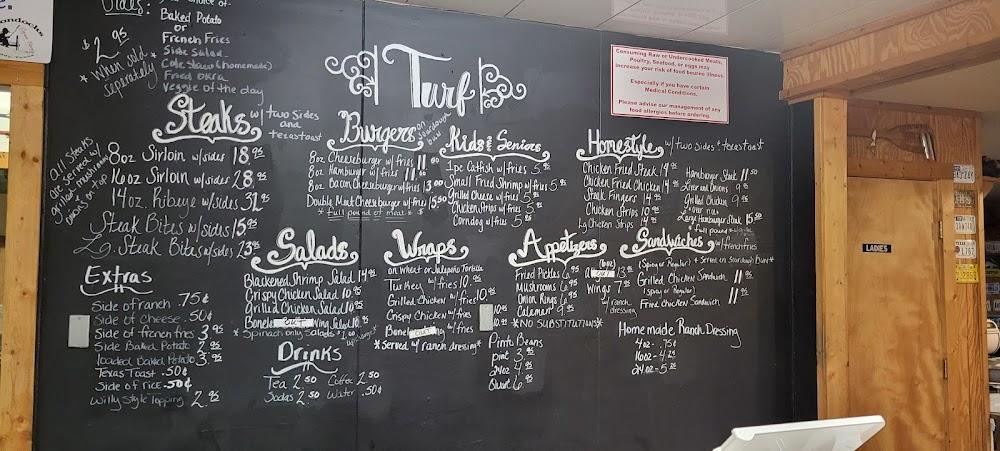 Sides:
Baked Potato
or
French Fries
Side Salad
Cole Slaw (homemade)
Fried Okra
Veggie of the day
$2.95
* When sold *
separately
Turf
Consuming Raw or Undercooked Meats,
Poultry, Seafood, or eggs may
increase your risk of food bourne illness.
Especially if you have certain
Medical Conditions.
Please advise our management of any
food allergies before ordering.
Steaks w/ two sides
and
texas toast
All steaks
are served w/
grilled mushrooms
onions on top
8oz Sirloin w/sides 18.95
16oz Sirloin w/sides 28.95
14oz. Ribeye w/sides 31.95
Steak Bites w/sides 15.95
Lg. Steak Bites w/sides 23.95
Burgers on sourdough bun
8oz Cheeseburger w/fries 11.00
8oz Hamburger w/fries 11.00
8oz Bacon Cheeseburger w/fries 13.00
Double Meat Cheeseburger w/fries 15.50
* full pound of meat *
Kids & Seniors
1pc Catfish w/fries 5.95
Small Fried Shrimp w/fries 5.95
Grilled Cheese w/fries 5.95
Chicken Strips w/fries 5.95
Corndog w/fries 5.95
Homestyle w/ two sides & texas toast
Chicken Fried Steak 14.95
Chicken Fried Chicken 14.95
Steak Fingers 14.95
Chicken Strips 10.95
Lg Chicken Strips 14.95
Hamburger Steak 11.50
Liver and Onions 9.95
Grilled Chicken 9.95
* over rice *
Large Hamburger Steak 15.50
* full pound *
LADIES
Extras
Side of ranch .75¢
Side of Cheese .50¢
Side of french fries 3.95
Side Baked Potato 2.95
Loaded Baked Potato 3.95
Texas Toast .50¢
Side of rice .50¢
Willy Style Topping 2.95
Salads
Blackened Shrimp Salad 14.95
Crispy Chicken Salad 10.95
Grilled Chicken Salad 10.95
Wing Salad 10.95
* Spinach only Salads $1.00
Drinks
Tea 2.50 Coffee 2.50
Sodas 2.50 Water .50¢
Wraps
on Wheat or Jalapeño Tortilla
Turkey w/ fries 10.95
Grilled Chicken w/ fries 10.95
Crispy Chicken w/fries 10.95
w/fries 10.95
* Served w/ ranch dressing *
Appetizers
Fried Pickles 6.95
Mushrooms 6.95
Onion Rings 6.95
Calamari 9.95
13.95
Wings 7.95
w/ ranch
dressing
* NO SUBSTITUTIONS *
Pinto Beans
pint 3.95
24oz 4.95
Quart 6.95
Sandwiches w/french fries
(Spicy or Regular) * Served on Sourdough Bun *
Grilled Chicken Sandwich 11.95
(Spicy or Regular)
Fried Chicken Sandwich 11.95
Homemade Ranch Dressing
4oz - .75¢
16oz - 4.25
24oz - 5.25